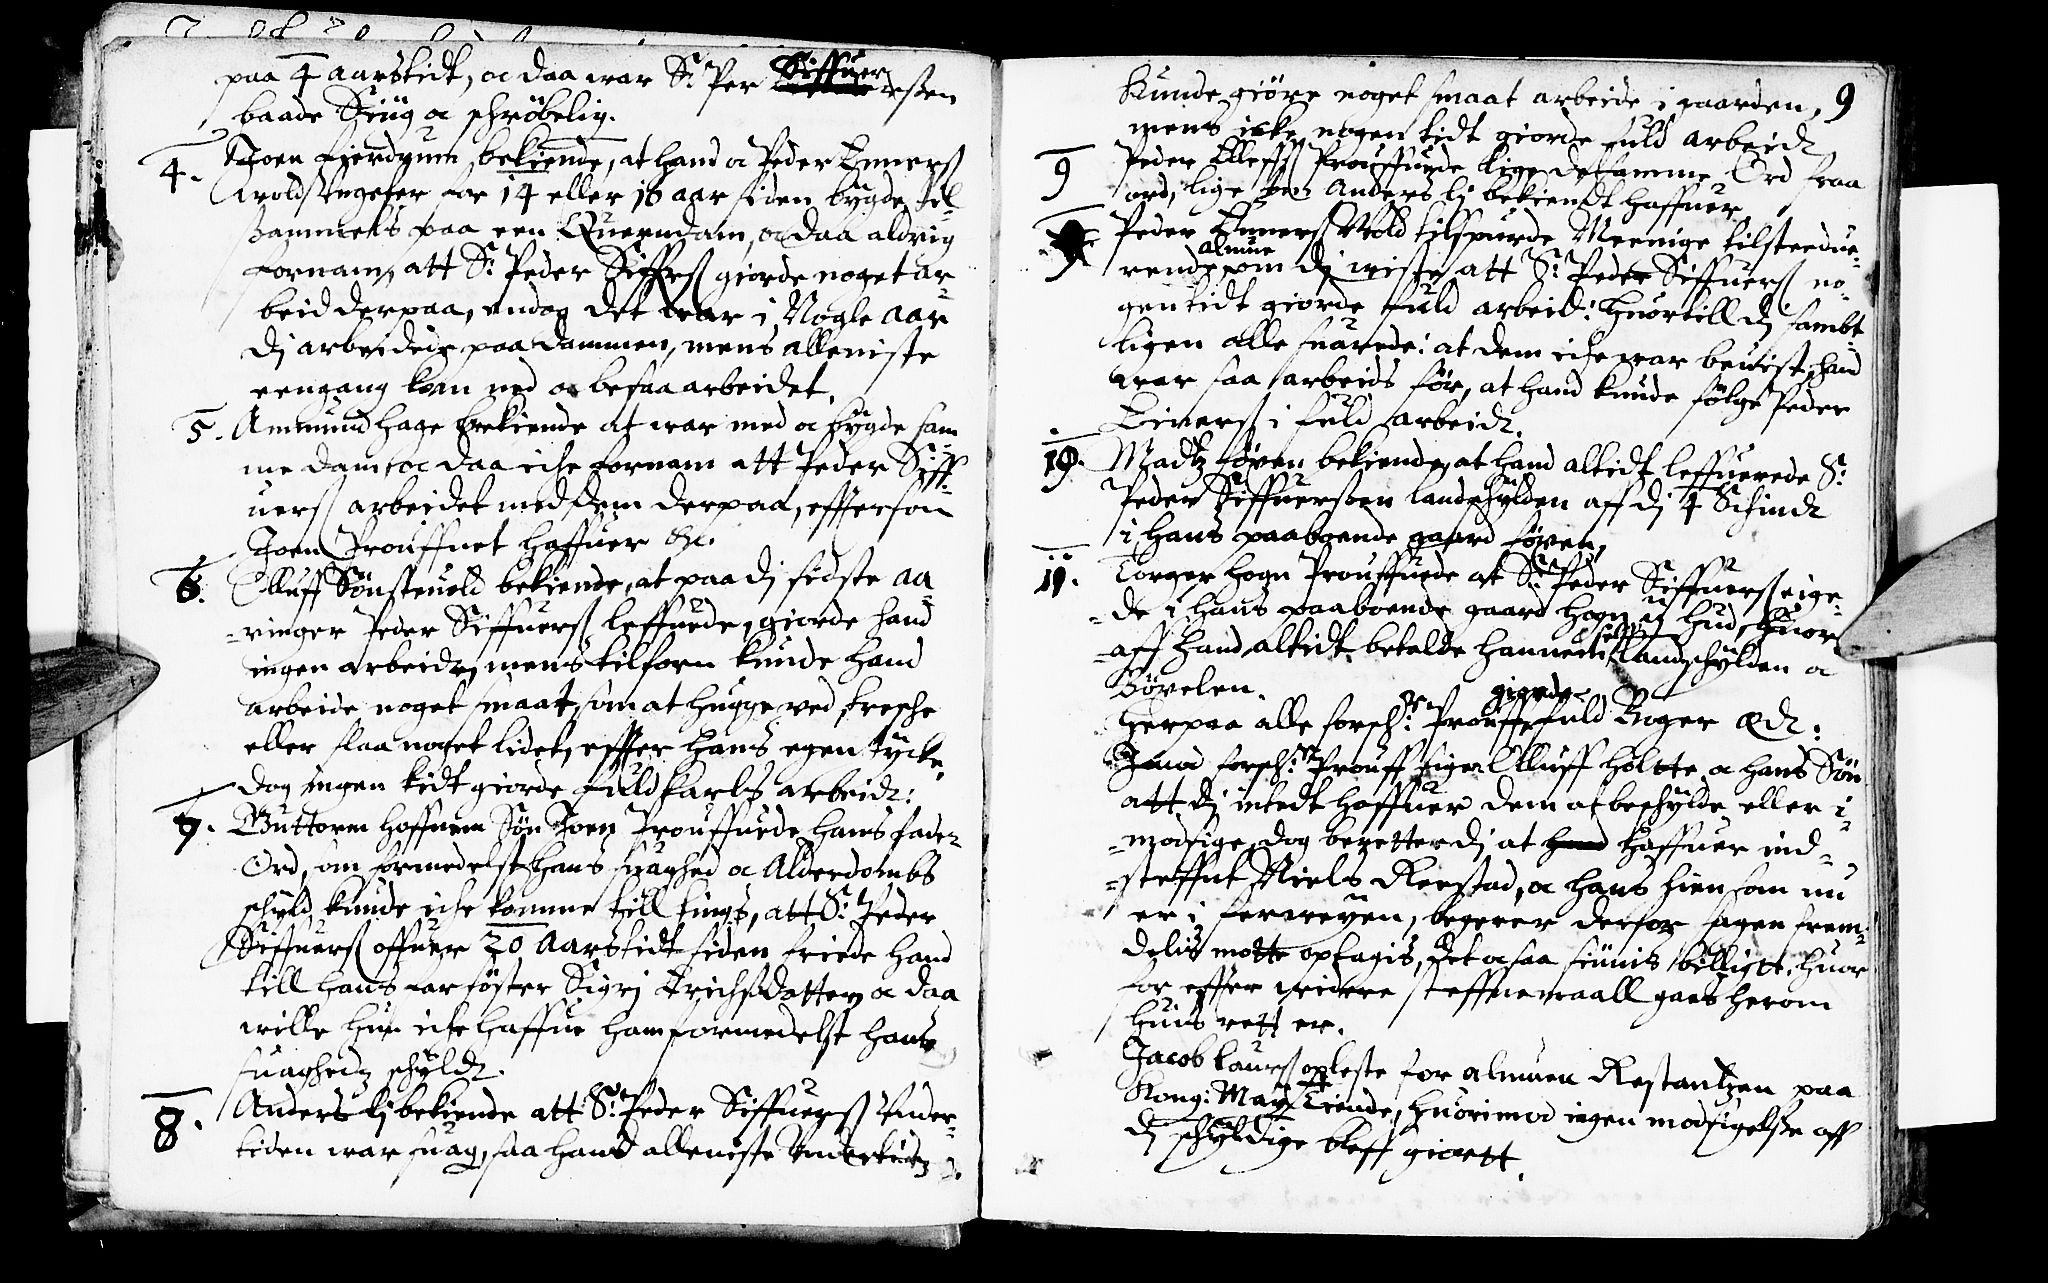 paa 4 aarstidt, oc daa war Sl: Per Siffuerssen
baade Siug oc schröbelig.
4. Joen fierdgum bekiende, at hand oc Peder Einerss
wold Ungefer for 14 eller 16 aar siden bygde til-
sammels paa een Querndam, oc daa aldrig
fornam, att Sl: Peder Siffuerss giorde noget ar-
beid derpaa, endog det war i Nogle aar
dj arbeidede paa dammen, mens alleniste
eengang kom ned oc besaa arbeidet.
5. Ammund hage bekiende at war med oc bygde sam-
me dam, oc daa iche fornam att Peder Siff-
uerss arbeidet med dem derpaa, effterson
Joen Prouffuet haffuer &c.
6. Olluff Sönsteuold bekiende, at paa dj sidste aa-
-ringer Peder Siffuerss leffuede, giorde hand
ingen arbeide, mens tilforn kunde hand
arbeide noget smaat, som at hugge ved, tresche
eller slaa noget lidet, effter hans egen tycke,
dog ingen tidt giorde fuld karls arbeide:
7. Guttorm hoffuem Sön Joen Prouffuede hans fader
Ord, om formedelst hans suaghed oc Alderdombs
schyld kunde iche komme till tings, att Sl: Peder
Siffuerss offuer 20 Aarstidt siden friede hand
till hans farsöster Sigrj Erichsdatter, oc daa
wille hun iche haffue ham formedelst hans
suaghedz schyld.
8. Anders lj bekiende att Sl: Peder Siffuerss Under-
tiden war suag, saa hand alleniste Undertiden

kunde giöre noget smaat arbeide i gaarden, 9
mens icke nogen tidt giorde fuld arbeid.
9 Peder Ellefss Prouffuede lige detsamme Ord fraa
ord, lige som Anders lj bekiendt haffuer
Peder Einerss Wold tilspurde Meenige tilsteedue-
rende almue om dj wiste att Sl: Peder Siffuerss no-
gen tidt giorde fuld arbeid: huortill dj sambt-
ligen alle suarede: at dem iche war beuist, hand
war saa arbeids för, at hand kunde fölge Peder
Einerss i fuld arbeid.
10. Madtz föven bekiende, at hand altidt leffuerede Sl:
Peder Siffuerssen landschylden aff dj 4 Schind
i hans paaboende gaard föven,
11. Torger hogn Prouffuede at Sl: Peder Siffuerss eige-
-de i hans paaboende gaard hogn hud, huor-
-aff hand altidt betalde hannem self landschylden oc
Böxelen.
herpaa alle forsch: Prouff giorde fuld Boger Ed:
Imod forsch: Prouff siger Olluff holtte oc hans Sön
att dj intedt haffuer dem at beschylde eller i-
-modsige, dog beretter dj at haffuer ind-
-steffnt Niels Reestad, oc hans hien som nu
er i ferreyen, begerer derfor sagen frem-
delis motte optagis, det ocsaa siunis billigt, huor
for effter widere steffnemaall gaes herom
huis rett er.
Jacob Laurss opleste for almuen Restantzen paa
Kong: May: Tiende, huorimod ingen modsigelsse aff
dj schyldige bleff giortt.